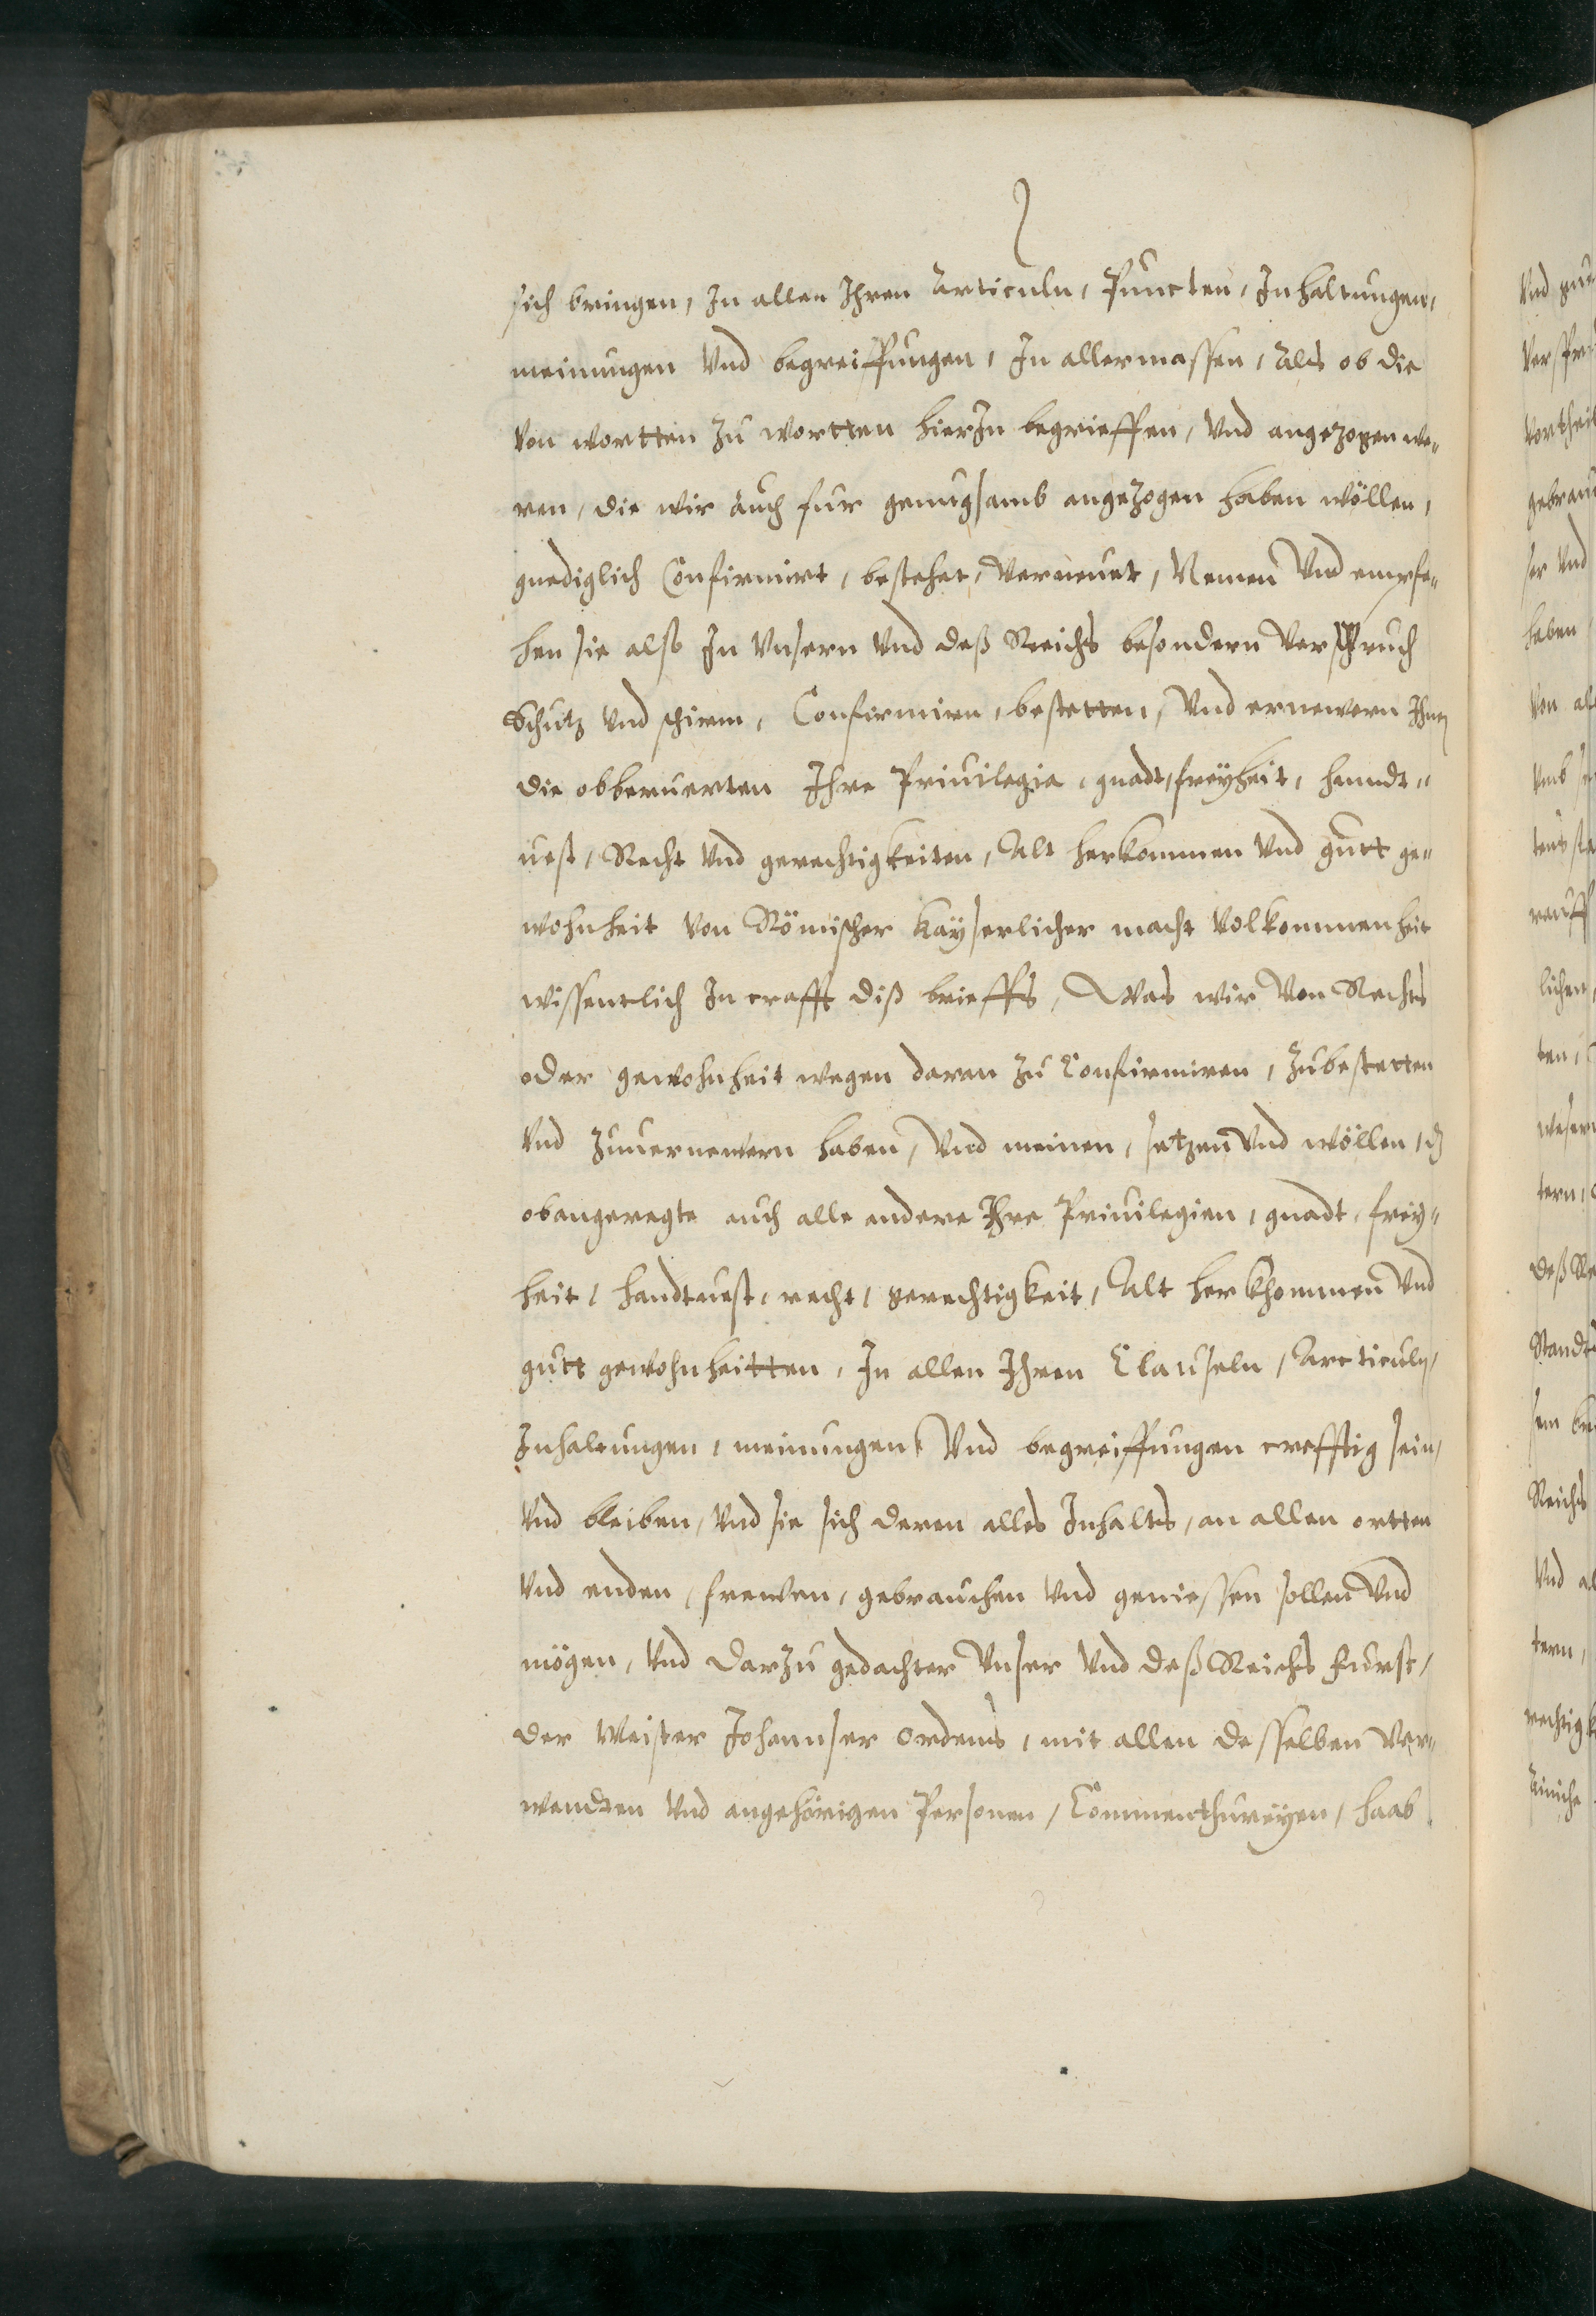 sich bringen, In allen Ihren Articuln, Puncten, Inhaltungen,
meinungen Vnd begreiffungen, In allermassen, Als ob die
von wortten zu wortten hierIn begrieffen, Vnd angezogen we„
ren, die wir auch fur genugsamb angezogen haben wöllen,
gnediglich Confirmirt, bestehet, Verneuet, Nemen Vnd empfa„
hen sie also In Vnsern Vnd deß Reichs besondern Verspruch
Schutz Vnd schirm, Confirmirn, bestetten, Vnd ernewern Ihnen
die obberuerten Ihre Priuilegia, gnadt, freÿheit, hanndt„
uest, Recht Vnd gerechtigkeiten, Alt herkommen Vnd gutt ge„
wohnheit von Römischer kayserlicher macht Volkommenheit
wissentlich In crafft diß brieffs, Was wir Von Rechts
oder gewohnheit wegen daran zu Confirmiren, zubestetten
Vnd zuuernewern haben, Vnd meinen, setzen Vnd wöllen, dz
obangeregte auch alle andere Ihre Priuilegien, gnadt, frey„
heit, handtuest, recht, gerechtigkeit, Alt herkhommen Vnd
gutt gewohnheitten, In allen Ihren Clauseln, Articuln,
Inhaltungen, meinungen, Vnd begreiffungen crefftig sein,
Vnd bleiben, Vnd sie sich deren alles Inhalts, an allen ortten
Vnd enden, frewen, gebrauchen Vnd geniessen sollen Vnd
mögen, Vnd darzu gedachter Vnser Vnd deß Reichs Furst,
der Meister Johannser Ordens, mit allen desselben Ver„
wandten Vnd angehörigen Personen, Commenthureÿen, haab